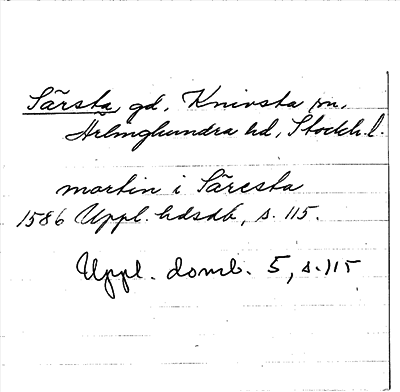 Särsta gd, Knivsta sn,
Ärlinghundra hd, Stockh. l.
martin i Säresta
1586 Uppl. hdsdb, s. 115.
Uppl. domb. 5, s. 115